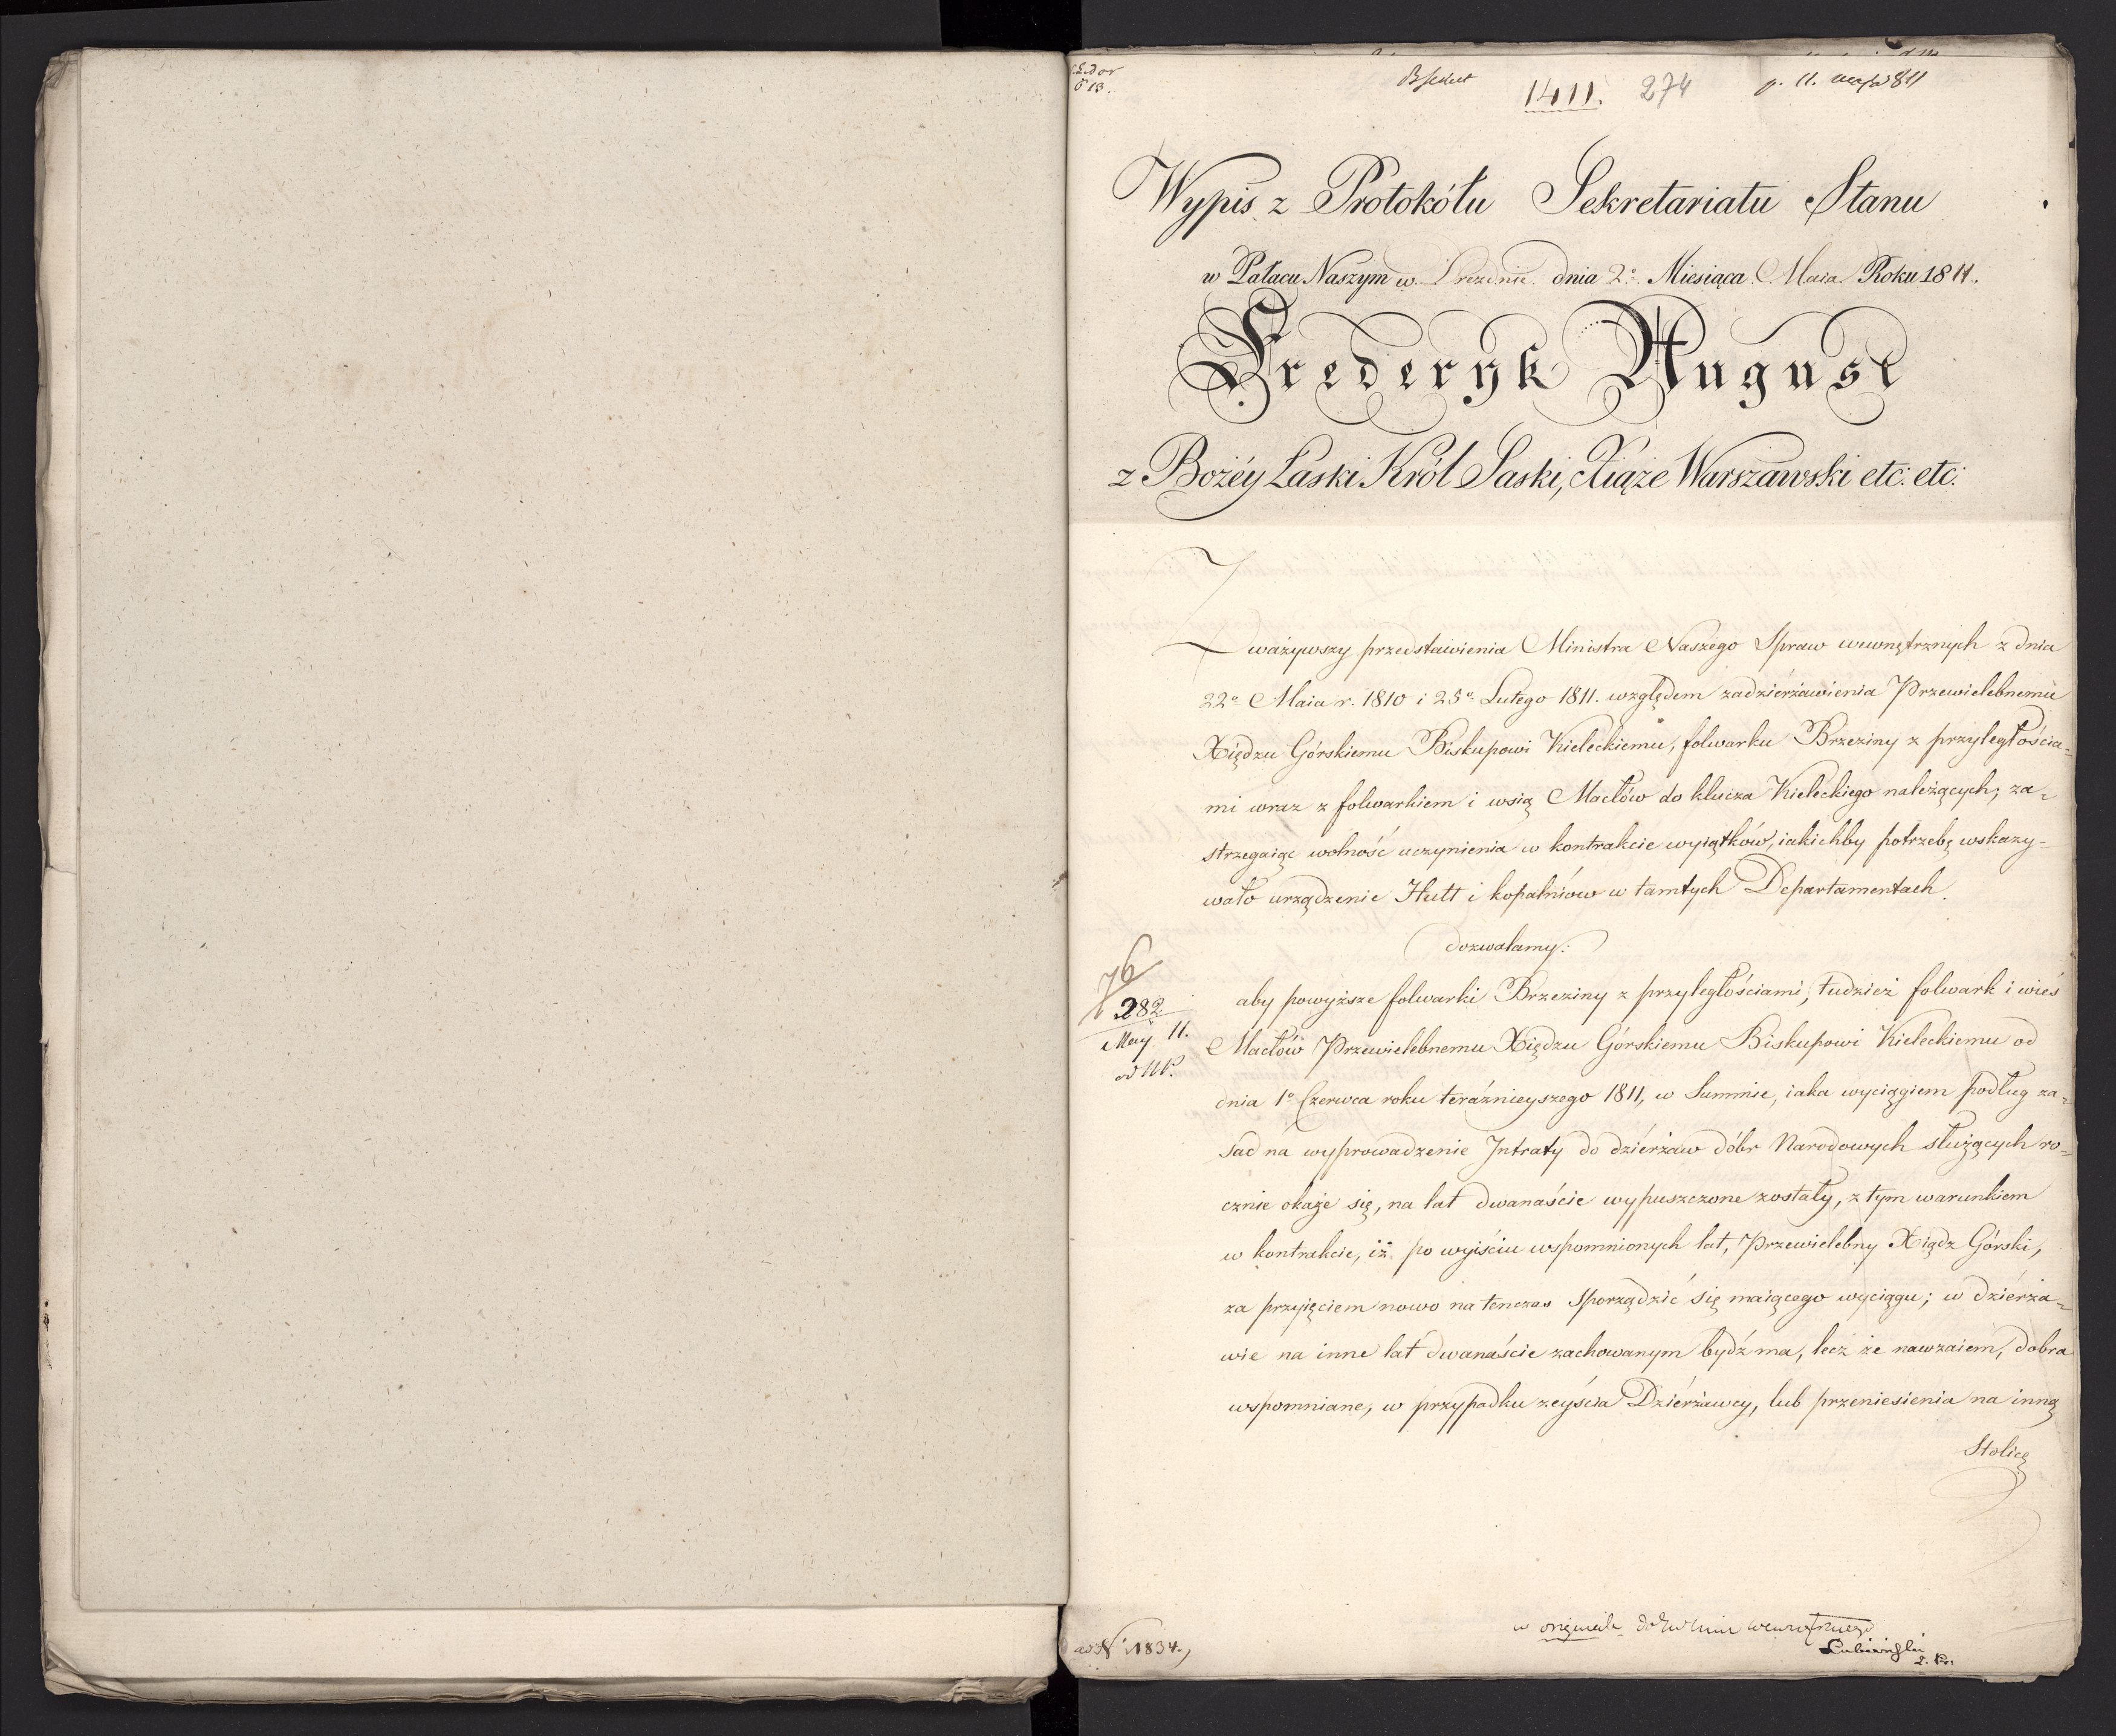 1411. 274
Wypis z Protokółu Sekretariatu Stanu
w Pałacu Naszym w Dreznie dnia 2° Miesiąca Maia Roku 1811.
Frederyk August
z Bożéy Łaski Król Saski, Xiąże Warszawski etc: etc:
Zważywszy przedstawienia Ministra Naszego Spraw wewnętrznych z dnia
22° Maia r. 1810 i 25° Lutego 1811. względem zadzierżawienia Przewielebnemu
Xiędzu Górskiemu Biskupowi Kieleckiemu, folwarku Brzeziny z przyległościa=
mi wraz z folwarkiem i wsią Macłów do klucza Kieleckiego należących; za=
strzegaiąc wolność uczynienia w kontrakcie wyiątków, iakichby potrzebę wskazy=
wało urządzenie Hutt i kopalniów w tamtych Departamentach.
dozwalamy:
aby powyższe folwarki Brzeziny z przyległościami, tudzież folwark i wieś
Macłów Przewielebnemu Xiędzu Górskiemu Biskupowi Kieleckiemu od
dnia 1° Czerwca roku teraźnieyszego 1811, w Summie, iaka wyciągiem podług za=
sad na wyprowadzenie Jntraty do dzierżaw dóbr Narodowych służących ro=
cznie okaże się, na lat dwanaście wypuszczone zostały, z tym warunkiem
w kontrakcie, iż po wyiściu wspomnionych lat, Przewielebny Xiądz Górski,
za przyięciem nowo na tenczas sporządzić się maiącego wyciągu; w dzierża=
wie na inne lat dwanaście zachowanym bydź ma, lecz że nawzaiem, dobra
wspomniane, w przypadku zeyścia Dzierżawcy, lub przeniesienia na inną
Stolicę
76
282
May 11.
ad N 1834.
w originale